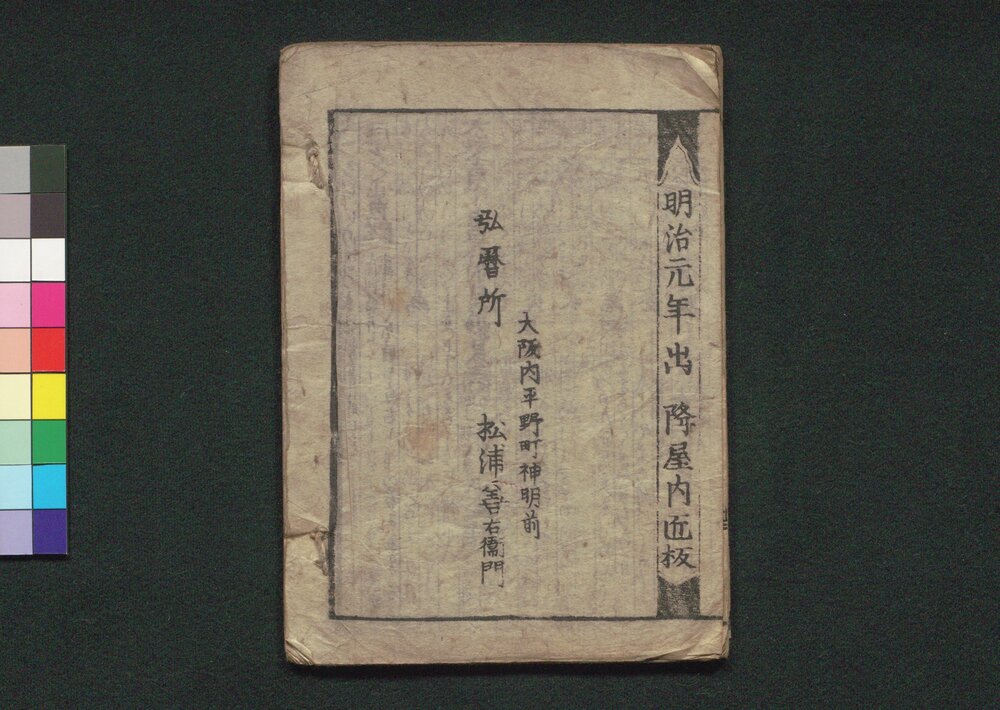 明治元年出 降屋内匠板
大阪内平野町神明前
弘暦所 松浦善右衛門